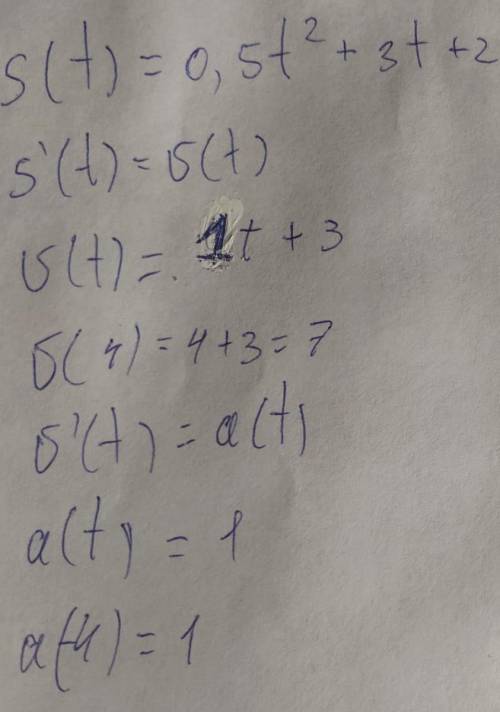 s(t) = 0,5t² + 3t + 2
s'(t) = v(t)
v(t) = 1t + 3
v(4) = 4 + 3 = 7
v'(t) = a(t)
a(t) = 1
a(4) = 1